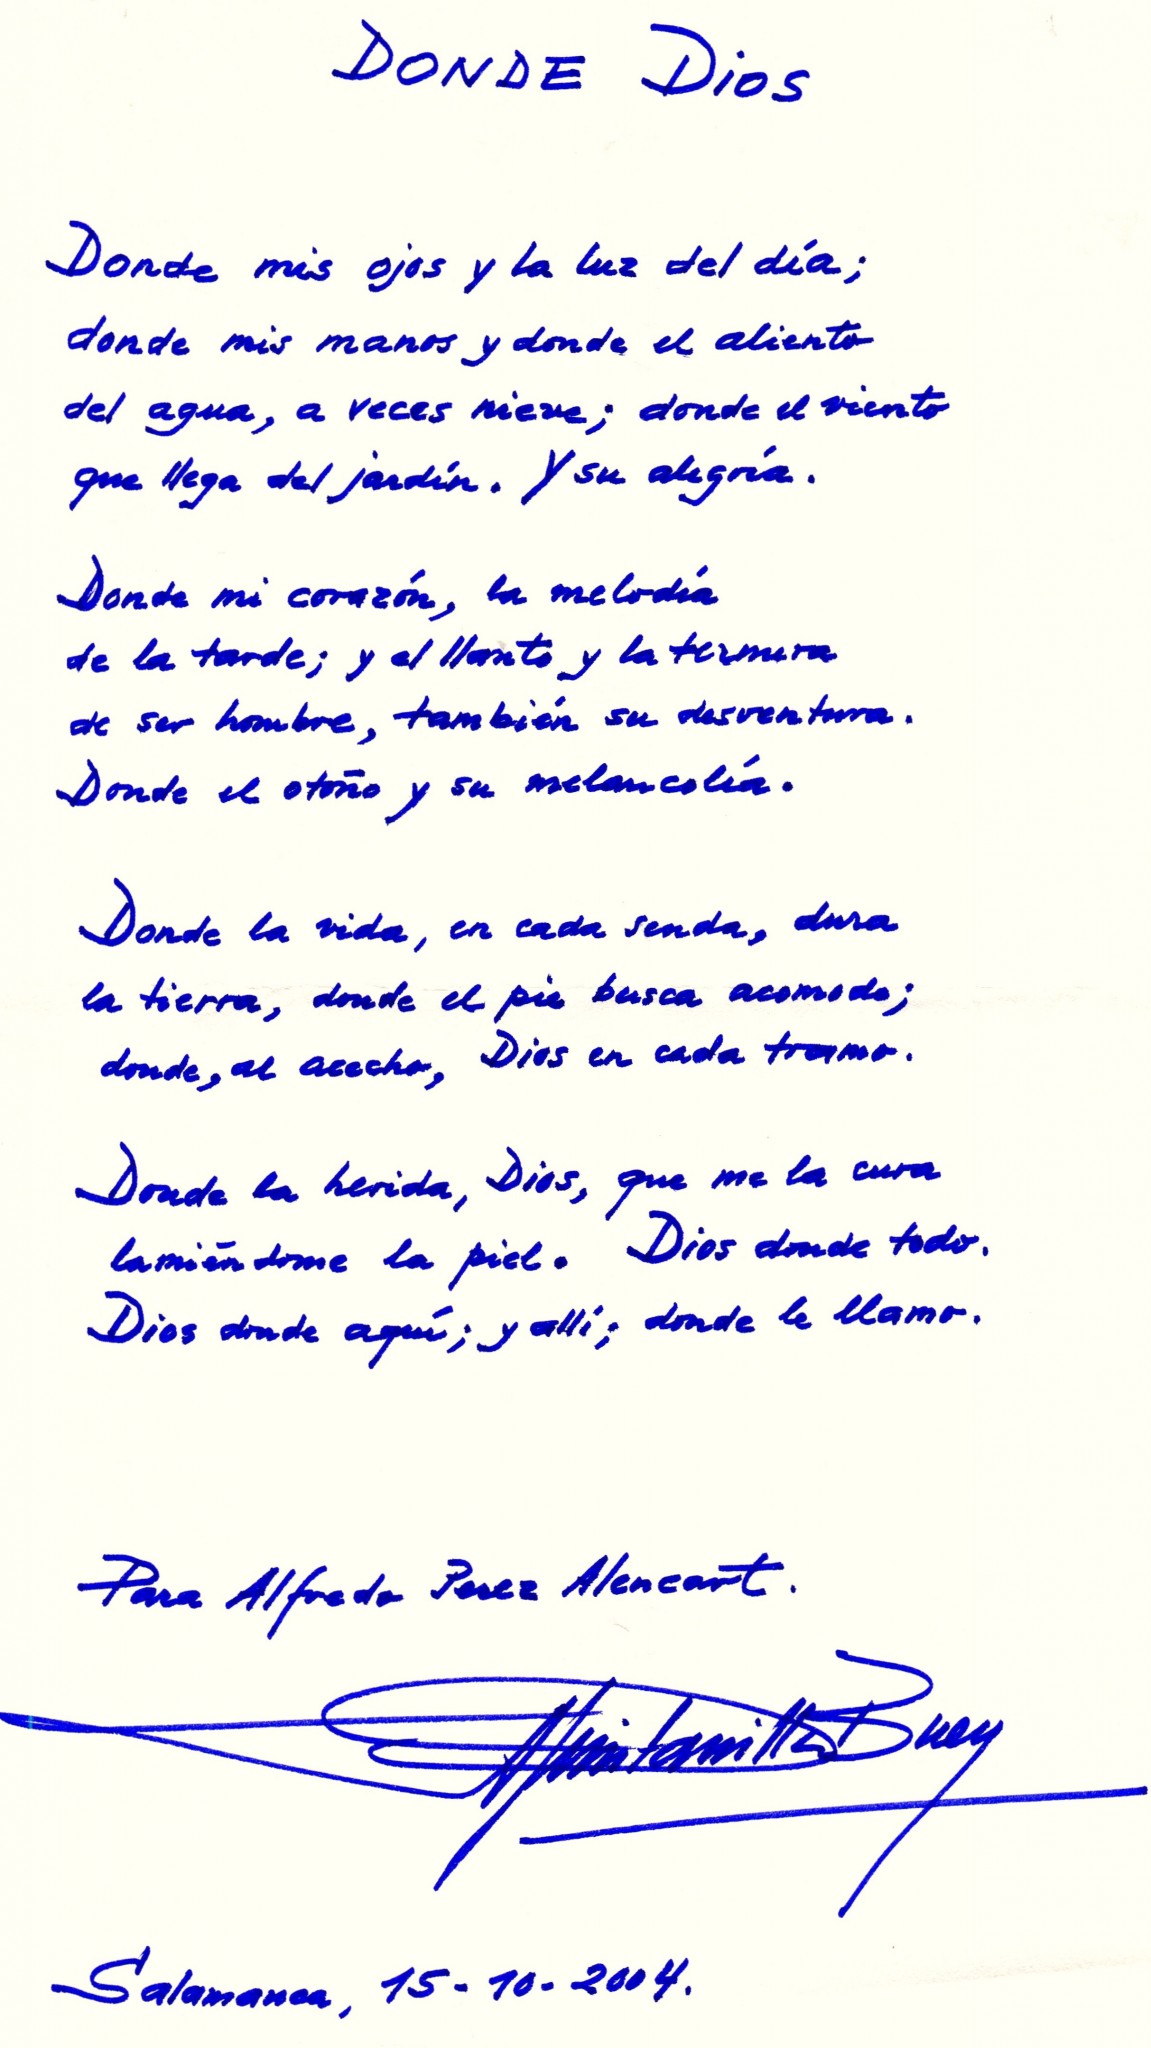 DONDE Dios
Donde mis ojos y la luz del día;
donde mis manos y donde el aliento
del agua, a veces nieve; donde el viento
que llega del jardín. Y su alegría.
Donde mi corazón, la melodía
de la tarde; y el llanto y la ternura
de ser hombre, también su desventura.
Donde el otoño y su melancolía.
Donde la vida, en cada senda, dura
la tierra, donde el pie busca acomodo;
donde, al acecho, Dios en cada tramo.
Donde la herida, Dios, que me la cura
lamiéndome la piel. Dios donde todo.
Dios donde aquí; y allí; donde le llamo.
Para Alfredo Perez Alencart.
Quintanilla Buey
Salamanca, 15-10-2004.